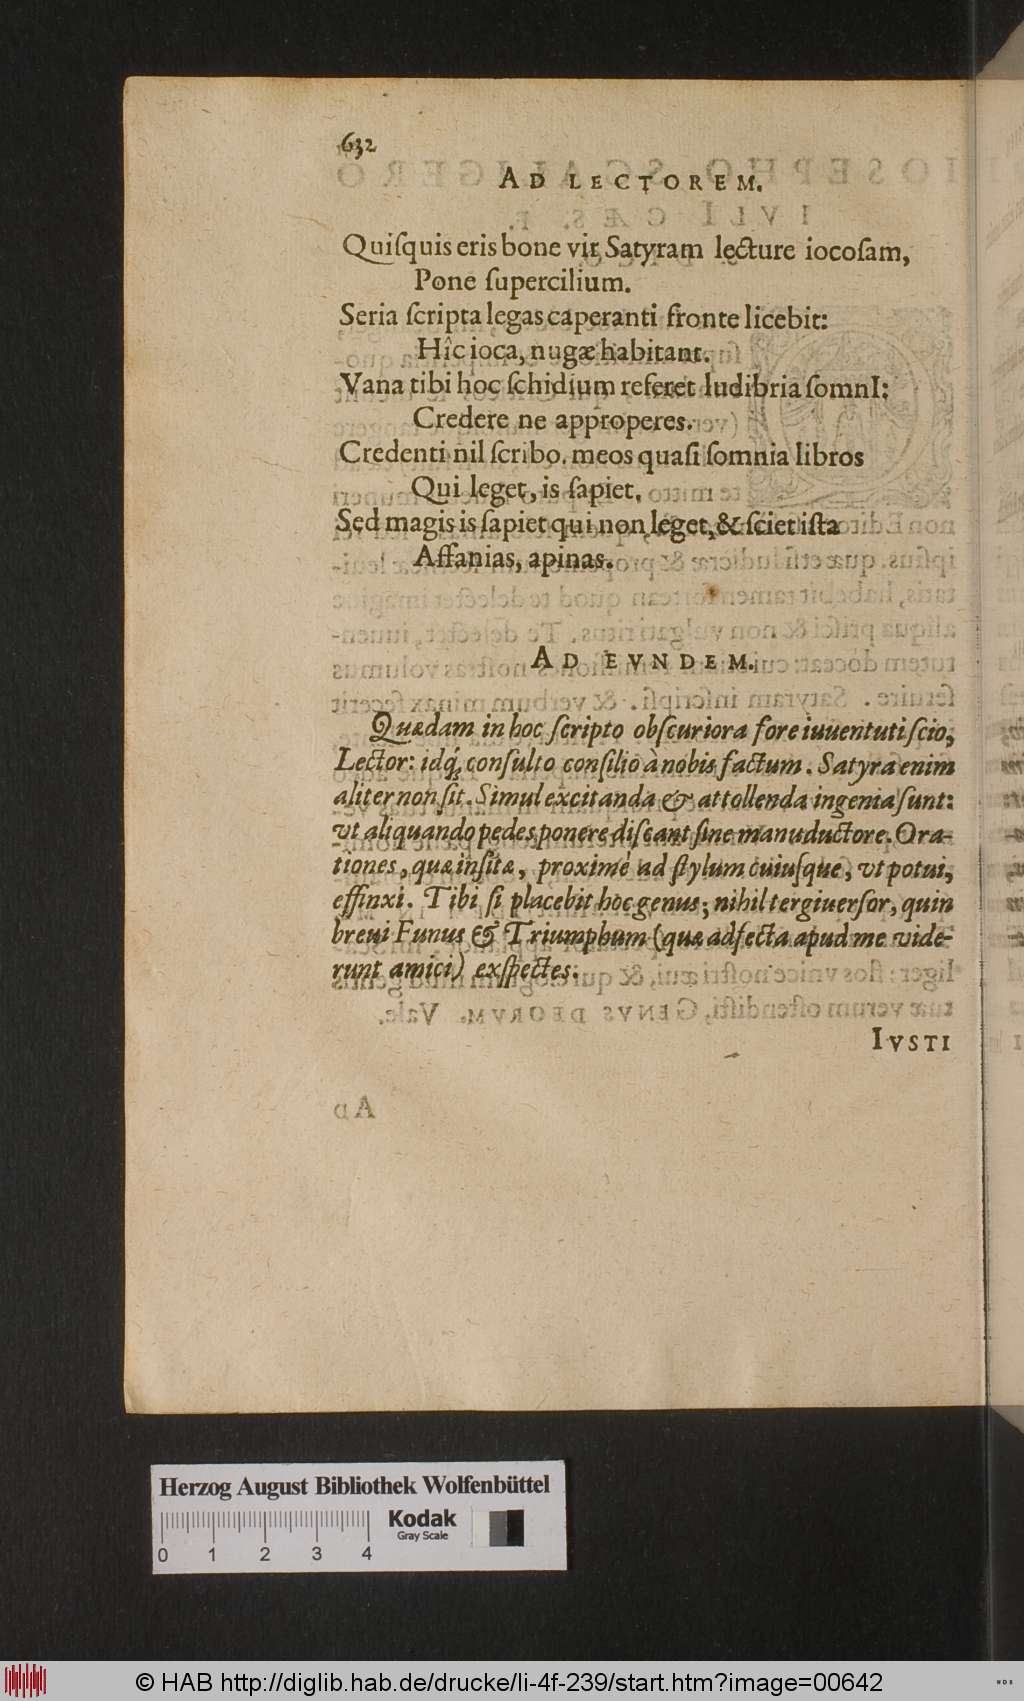 632
AD LECTOREM.
Quiſquis eris bone vir, Satyram lecture iocoſam,
Pone ſupercilium.
Seria ſcripta legas caperanti fronte licebit:
Hîc ioca, nugæ habitant.
Vana tibi hoc ſchidium referet ludibria ſomnI:
Credere ne approperes.
Credenti nil ſcribo. meos quaſi ſomnia libros
Qui leget, is ſapiet.
Sed magis is ſapiet qui non leget, & ſciet iſta
Affanias, apinas.
AD EVNDEM.
Quædam in hoc ſcripto obſcuriora fore iuuentuti ſcio,
Lector: idq́; conſulto conſilio à nobis factum. Satyra enim
aliter non ſit. Simul excitanda & attollenda ingenia ſunt:
vt aliquando pedes ponere diſcant ſine manuductore. Ora-
tiones, quæ inſitæ, proximè ad ſtylum cuiuſque, vt potui,
effinxi. Tibi ſi placebit hoc genus; nihil tergiuerſor, quin
breui Funus & Triumphum (quæ adfecta apud me vide-
runt amici) exſpectes.
IVSTI
Herzog August Bibliothek Wolfenbüttel
Kodak
Gray Scale
0 1 2 3 4
© HAB http://diglib.hab.de/drucke/li-4f-239/start.htm?image=00642